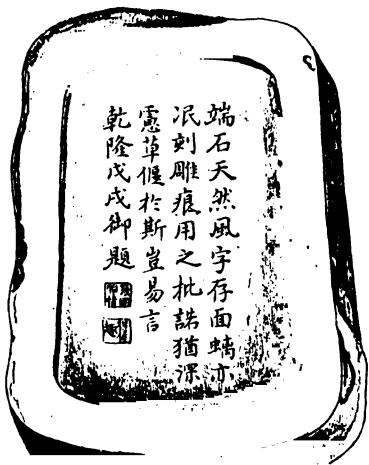 端石天然風字存面螭亦
泯刻雕痕用之批誥猶深
慝草偃於斯豈易言
乾隆戊戌御題